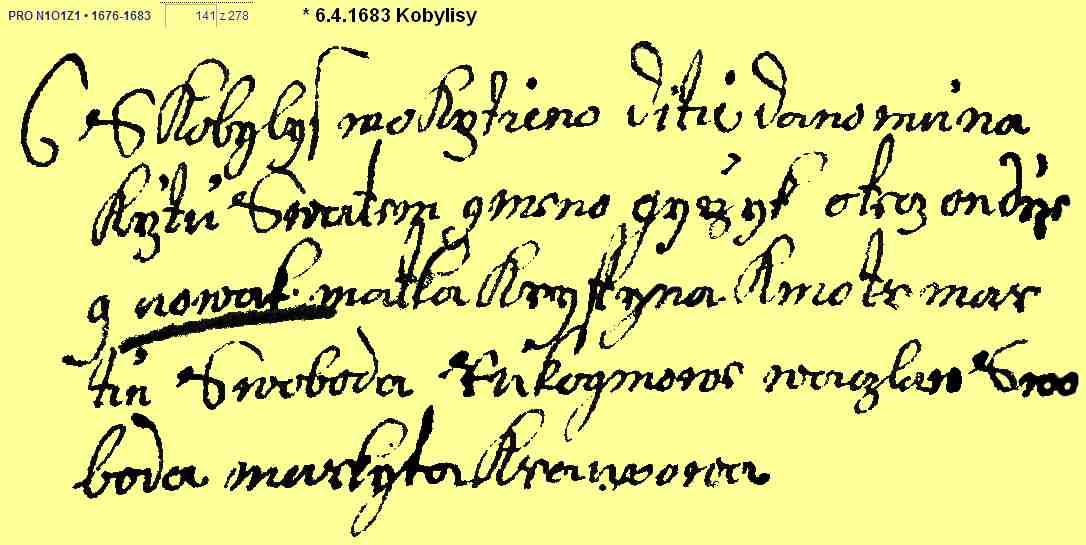 PRO N1O1Z1 • 1676-1683 141 z 278 * 6.4.1683 Kobylisy
6 S Kobylys pokrztieno ditie dano mu na
krztu Swatem gmeno gyržyk otecz ondrze
g nowak. matka Krystyna Kmotr mar
tin Swoboda Rukogmowe waczlaw Swo
boda markyta Krawcowa